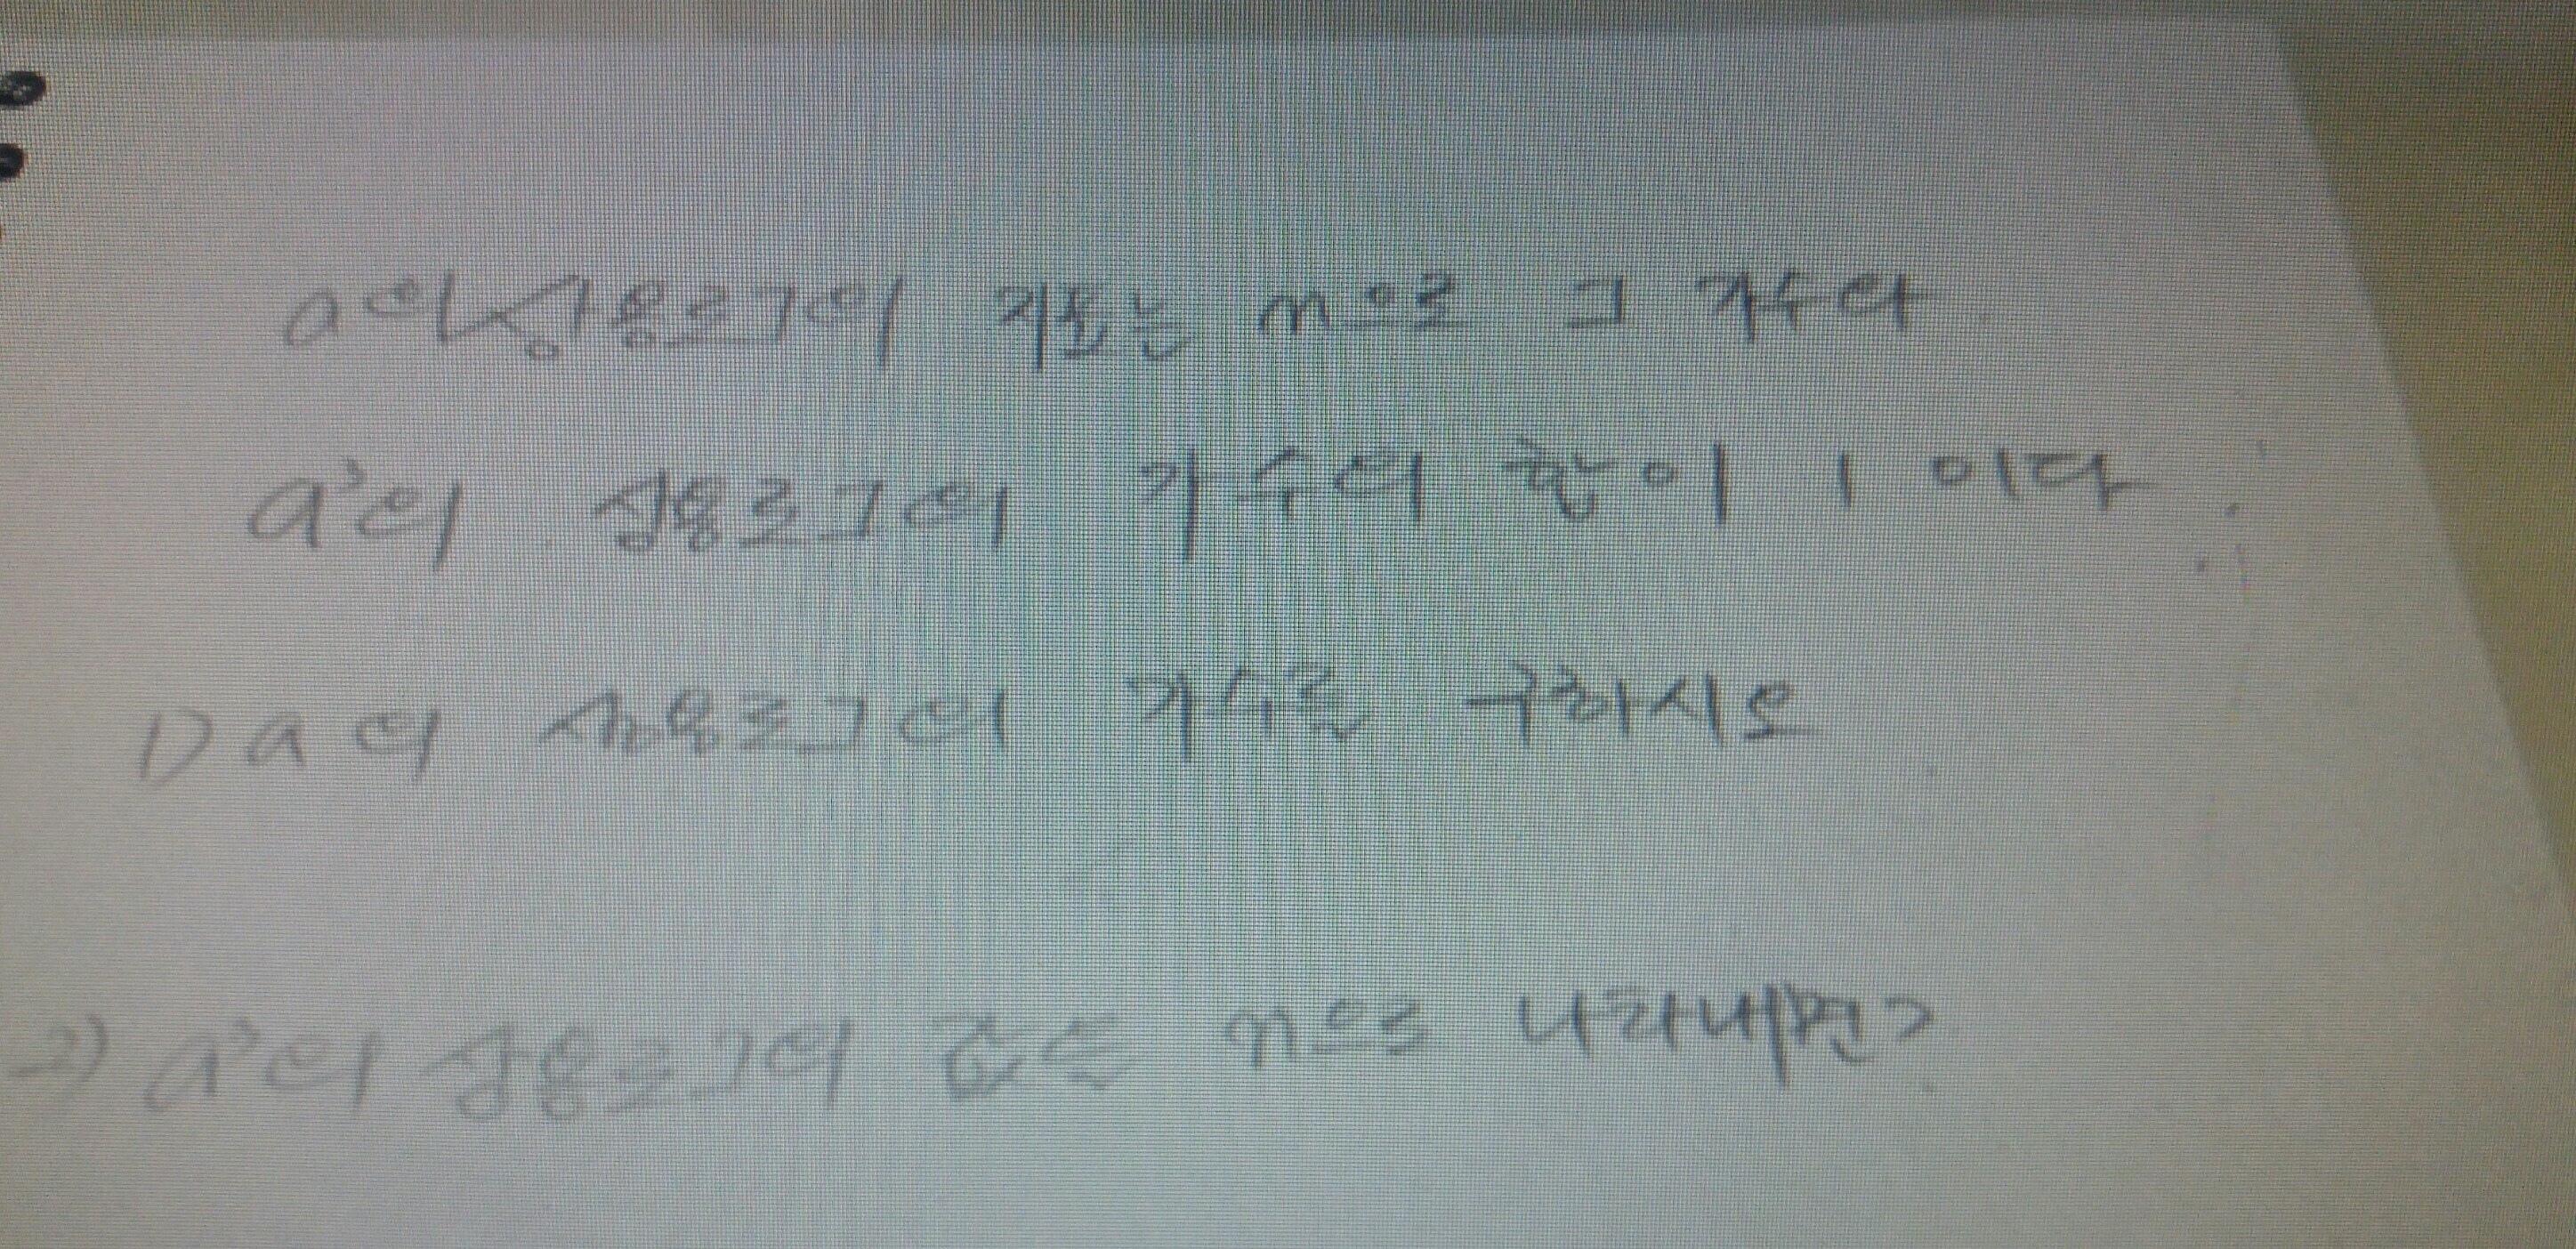 a의 상용로그의 지표는 n으로 그 가수와
a³의 상용로그의 가수의 합이 1이다
1) a의 상용로그의 가수를 구하시오
2) a³의 상용로그의 값을 n으로 나타내면?